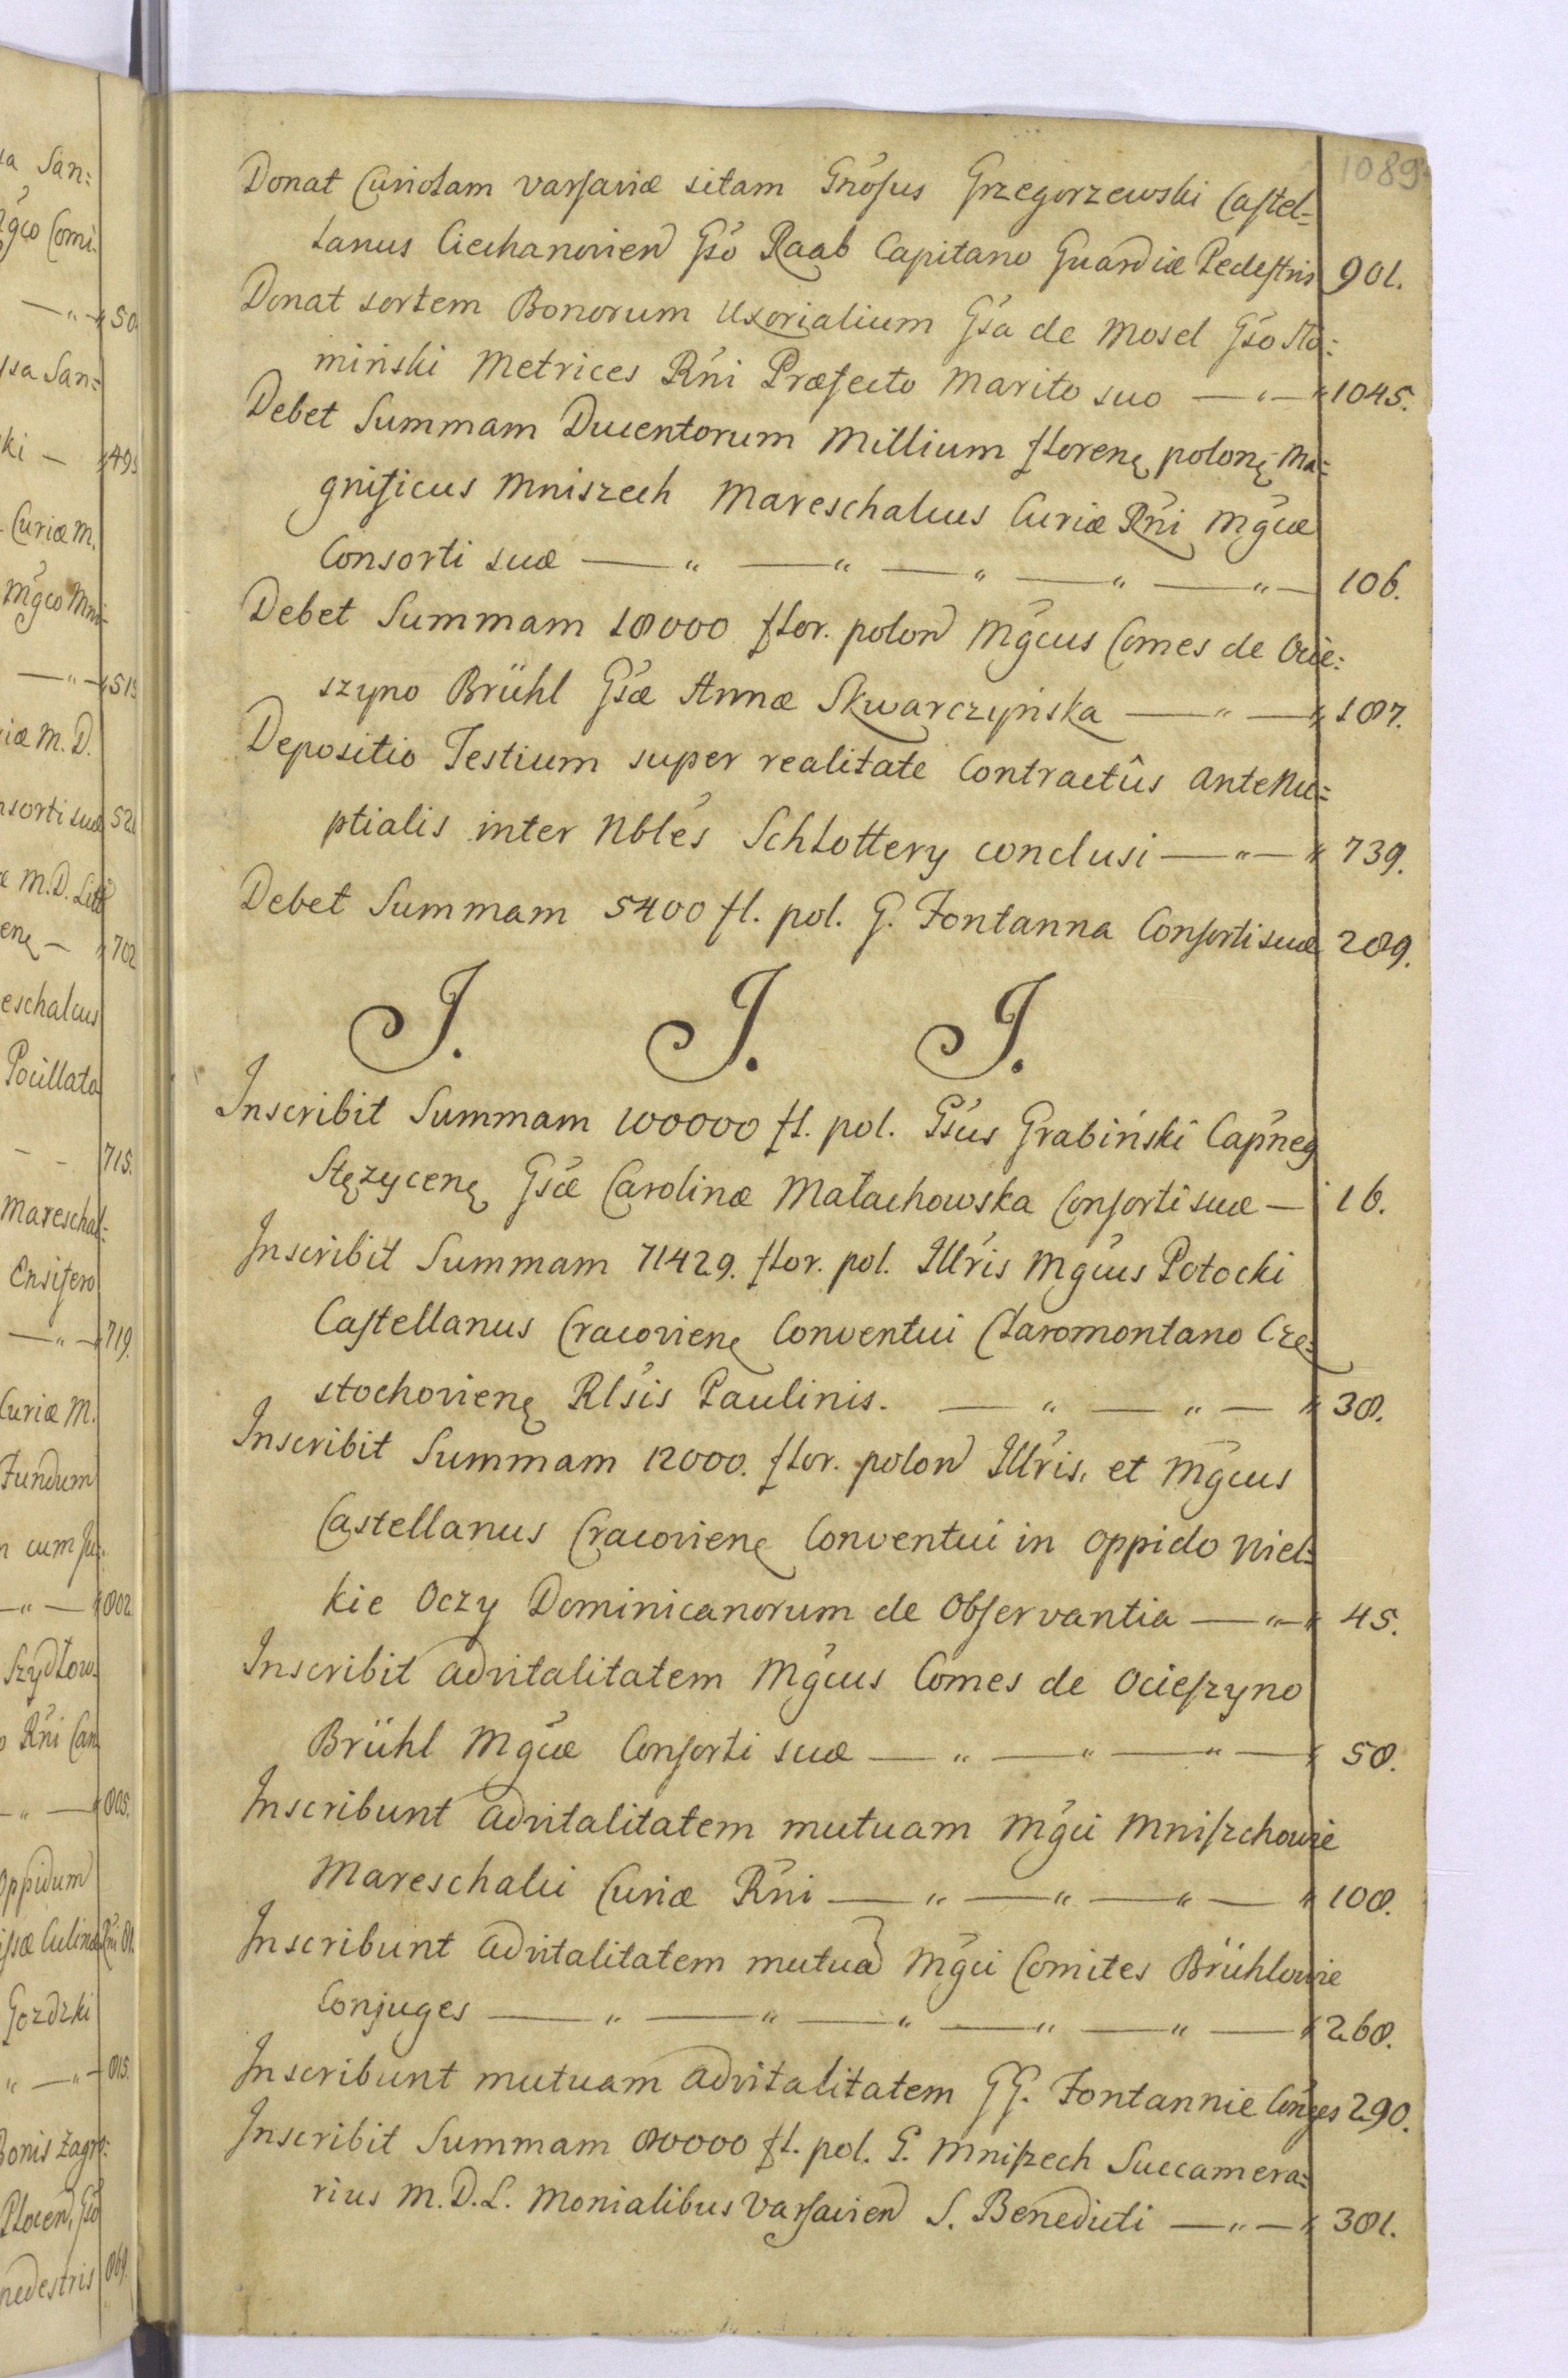 1089
Donat Curiolam varsaviæ sitam Gnosus Grzegorzewski Castel-
lanus Ciechanovien Gso Raab Capitano Guardiæ Pedestris 901.
Donat sortem Bonorum Uxorialium Gsa de Mosel Gso Sło:
miński Metrices Rni Præfecto Marito suo — " — " 1045.
Debet Summam Ducentorum Millium florenę polonę Ma:
gnificus Mniszech Mareschalcus Curiæ Rni Mgcæ
Consorti suæ — " — " — " — " — " — 106.
Debet Summam 18000 flor. polon Mgcus Comes de Ocie:
szyno Brühl Gsæ Annæ Skwarczyńska — " — " 187.
Depositio Testium super realitate Contractûs anteNu:
ptialis inter Nbles Schlottery conclusi — " — " 739.
Debet Summam 5400 fl. pol. G. Fontanna Consorti suæ 289.
J. J. J.
Inscribit Summam 100000 fl. pol. Gsus Grabiński Capneg
Stężycenę Gsæ Carolinæ Małachowska Consorti suæ — 16.
Inscribit Summam 71429. flor. pol. Illris Mgcus Potocki
Castellanus Cracovienę Conventui Claromontano Czę=
stochovienę Rlsis Paulinis. — " — " — " 38.
Inscribit Summam 12000. flor. polon Illris, et Mgcus
Castellanus Cracovienę Conventui in oppido Wiel=
kie Oczy Dominicanorum de Observantia — " — " 45.
Inscribit advitalitatem Mgcus Comes de Ocieszyno
Brühl Mgcæ Consorti suæ — " — " — " — " 58.
Inscribunt advitalitatem mutuam Mgci Mniszchowie
Mareschalci Curiæ Rni — " — " — " — " 108.
Inscribunt advitalitatem mutua Mgci Comites Brühlowie
Conjuges — " — " — " — " — " — " 268.
Inscribunt mutuam advitalitatem GG. Fontannie Conges 290.
Inscribit Summam 80000 fl. pol. G. Mniszech Succamera=
rius M. D. L. Monialibus Varsavien S. Benedicti — " — " 381.